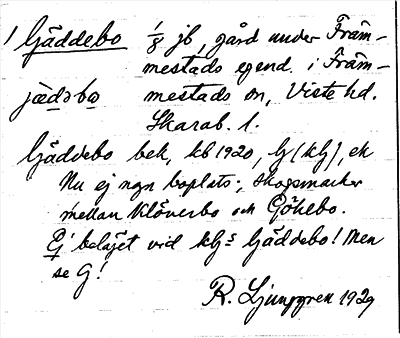 1 Gäddebo 1/8 jb, gård under Främ-
mestads egend. i Främ-
jæ̀dəbω mestads sn, Viste hd.
Skarab. l.
Gäddebo bek, kb 1920, G (kG), ek
Nu ej ngn boplats; skogsmarker
mellan Klöverbo och Gökebo.
Ej beläget vid kGs Gäddebo! Men
se G!
R. Ljunggren 1929